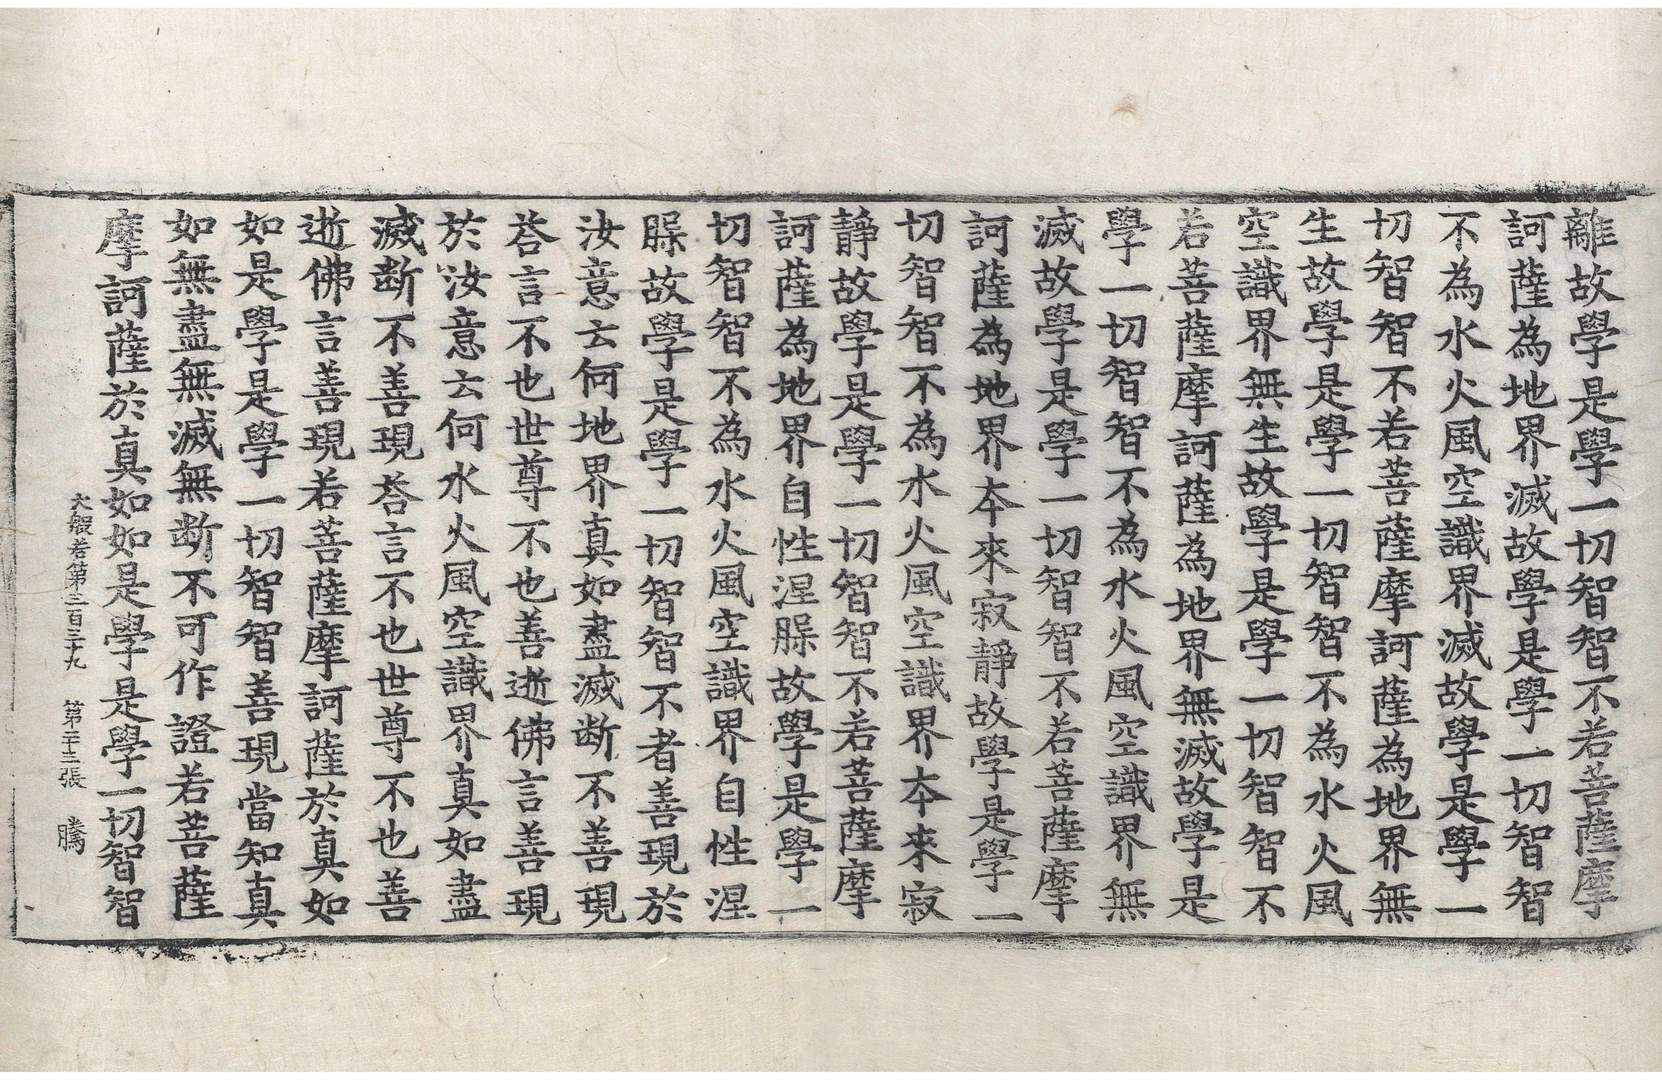 離故學是學一切智智不若菩薩摩
訶薩為地界滅故學是學一切智智
不為水火風空識界滅故學是學一
切智智不若菩薩摩訶薩為地界無
生故學是學一切智智不為水火風
空識界無生故學是學一切智智不
若菩薩摩訶薩為地界無滅故學是
學一切智智不為水火風空識界無
滅故學是學一切智智不若菩薩摩
訶薩為地界本來寂靜故學是學一
切智智不為水火風空識界本來寂
靜故學是學一切智智不若菩薩摩
訶薩為地界自性涅槃故學是學一
切智智不為水火風空識界自性涅
槃故學是學一切智智不者善現於
汝意云何地界真如盡滅断不善現
荅言不也世尊不也善逝佛言善現
於汝意云何水火風空識界真如盡
滅断不善現荅言不也世尊不也善
逝佛言善現若菩薩摩訶薩於真如
如是學是學一切智智善現當知真
如無盡無滅無断不可作證若菩薩
摩訶薩於真如如是學是學一切智智
大般若第三百三十九 第二十三張 騰